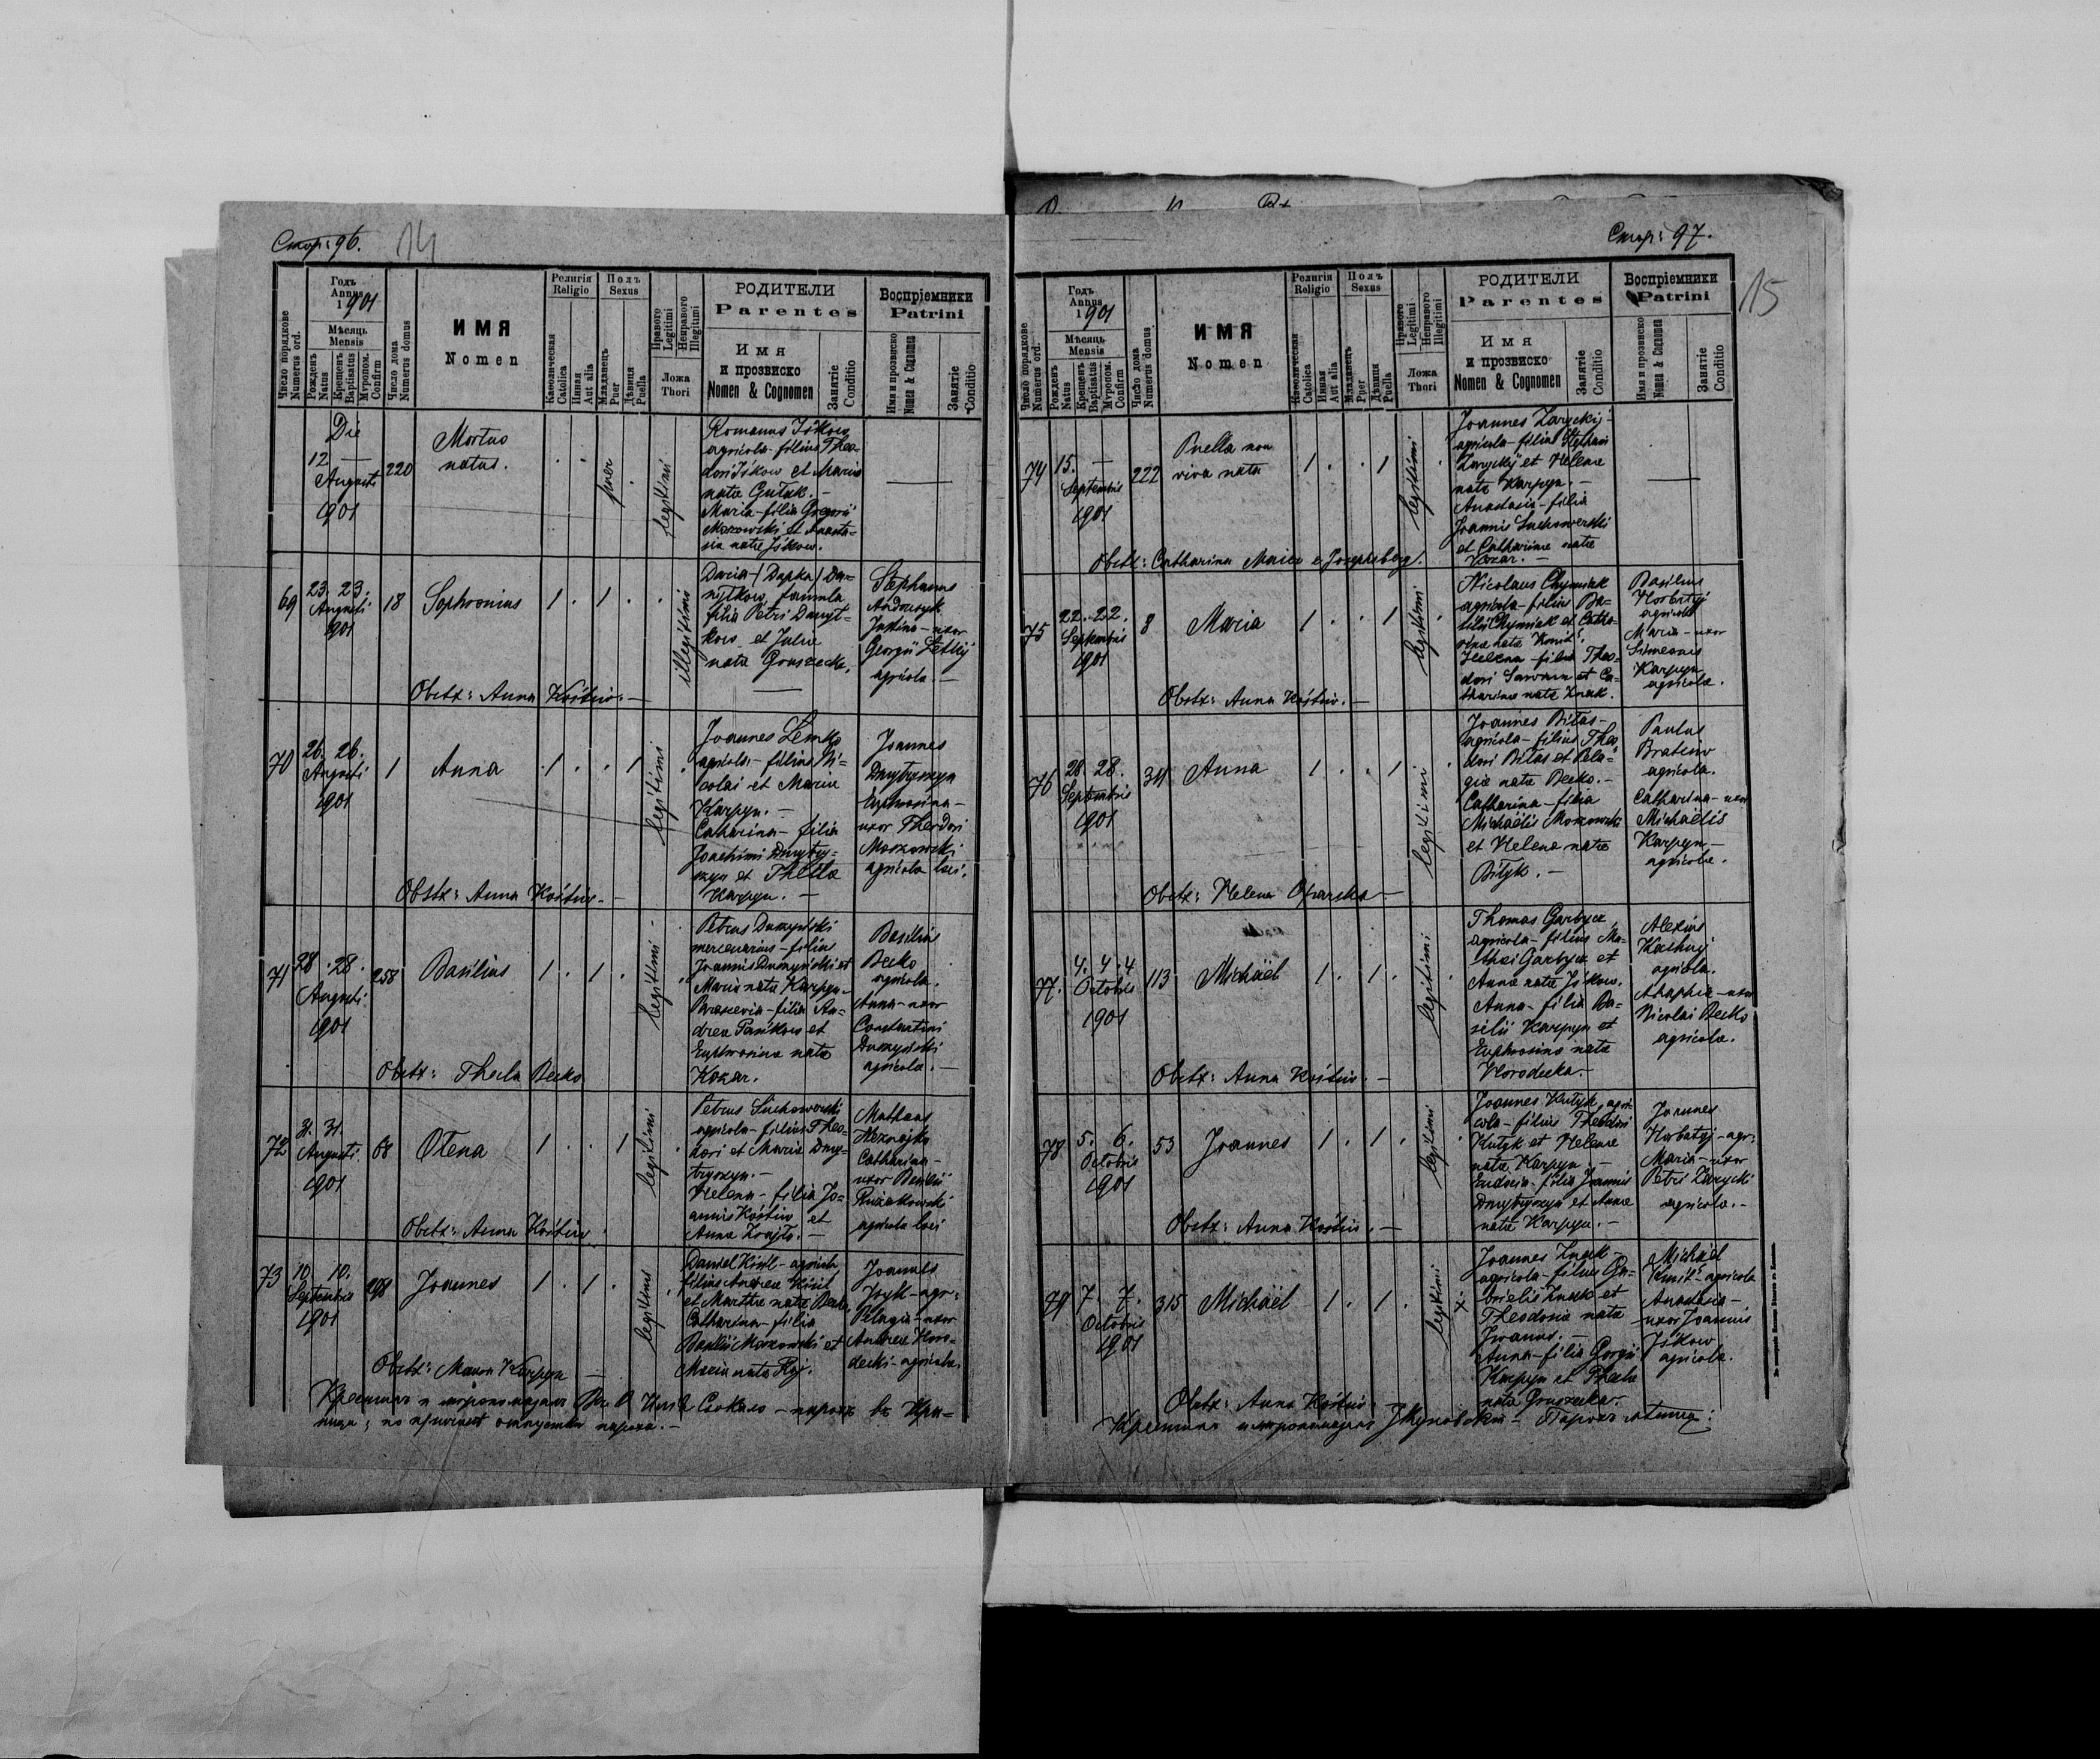 Стор: 96.
14
Число порядкове
Numerus ord.
Годъ
Annus
1901
Мѣсяць
Mensis
Рожденъ
Natus
Крещенъ
Baptisatus
Муропом.
Confirm
Число дома
Numerus domus
ИМЯ
Nomen
Религія
Religio
Католическая
Catolica
Иншая
Aut alia
Полъ
Sexus
Младенецъ
Puer
Дѣвиця
Puella
Правого
Legitimi
Неправого
Illegitimi
Ложа
Thori
РОДИТЕЛИ
Parentes
Имя
и прозвиско
Nomen & Cognomen
Занятіе
Conditio
Воспріемники
Patrini
Имя и прозвиско
Nomen & Cognomen
Занятіе
Conditio
Die
12 —
Augusti
1901
220
Mortuo
natus.
puer
legitimi
Romanus Iśkow
agricola - filius Theo-
dori Iśkow et Maria
nata Gutak. -
Maria - filia Gregorii
Moszowski et Anasta-
sia nata Iśkow.
69
23. 23.
Augusti
1901
18
Sophronius
1 . 1 .
illegitimi
Daria / Dapka / Da-
nyłkow, famula
filia Petri Danył-
kow et Julie
nata Gruszecka.
Stephanus
Justina - uxor
Georgii
agricola. -
Obstx: Anna Kośtiw. -
70
26. 26.
Augusti
1901
1
Anna
1 . . 1
legitimi
Joannes Lemko
agricola - filius Ni-
colai et Maria
Karpyn. -
Catharina - filia
Joachimi Dmytry-
szyn et Thekla
Karpyn. -
Joannes
Dmytryszyn
Euphrosina -
uxor Theodori
Moszowski
agricola loci.
Obstx: Anna Kośtiw. -
71
28. 28.
Augusti
1901
258
Basilius
1 . 1 .
legitimi -
Petrus Duszyński
mercenarius - filius
Joannis Duszyński et
Maria nata Karpyn -
Parascevia - filia An-
drea Panikow et
Euphrosina nata
Kozar.
Basilius
Becko
agricola.
Anna - uxor
Constantini
Duszyński
agricola. -
Obstx: Thecla Becko
72
31. 31.
Augusti
1901
68
Olena
1 . . 1
legitimi
Petrus Suchowerski
agricola - filius Theo-
dori et Maria Dmy-
tryszyn. -
Helena - filia Jo-
annis Kośtiw et
Anna
Mathaus
Catharina -
uxor Basilii
agricola loci
Obstx: Anna Kośtiw.
73
10. 10.
Septembris
1901
298
Joannes
1 . 1 .
legitimi
Daniel Kisil - agricola
filius Andrea Kisil
et Martha nata Becko,
Catharina - filia
Basilii Moszowski et
Maria nata Roj.
Joannes
agr:
Pelagia - uxor
Andrea Horo-
decki - agricola.
Obstx: Maria Karpyn. -
Стор: 97.
15
Число порядкове
Numerus ord.
Годъ
Annus
1901
Мѣсяць
Mensis
Рожденъ
Natus
Крещенъ
Baptisatus
Муропом.
Confirm
Число дома
Numerus domus
ИМЯ
Nomen
Религія
Religio
Католическая
Catolica
Иншая
Aut alia
Полъ
Sexus
Младенецъ
Puer
Дѣвиця
Puella
Правого
Legitimi
Неправого
Illegitimi
Ложа
Thori
РОДИТЕЛИ
Parentes
Имя
и прозвиско
Nomen & Cognomen
Занятіе
Conditio
Воспріемники
Patrini
Имя и прозвиско
Nomen & Cognomen
Занятіе
Conditio
74
15. —
Septembris
1901
222
Puella non
viva nata
1 . . 1
legitimi
Joannes Zaryckij -
agricola - filius Stephani
Zaryckij et Helena
nata Karpyn. -
Anastasia - filia
Joannis Suchowerski
et Catharina nata
Kozar. -
Obstx: Catharina Maier e Josephsberg.
75
22. 22.
Septembris
1901
8
Maria
1 . . 1
legitimi
Nicolaus Chymiak
agricola - filius Ba-
silii Chymiak et Catha-
rina nata Kmit.
Helena - filia Theo-
dori et Ca-
tharina nata Znak.
Basilius
Horbatyj
agricola
Maria - uxor
Simeonis
Karpyn
agricola.
Obstx: Anna Kośtiw. -
76
28. 28.
Septembris
1901
34
Anna
1 . . 1
legitimi
Joannes Bilas -
agricola - filius Theo-
dori Bilas et Pela-
gia nata Becko. -
Catharina - filia
Michaëlis Moszowski
et Helena nata
Bilyk. -
Paulus
Bratiw
agricola.
Catharina - uxor
Michaëlis
Karpyn -
agricola.
Obstx: Helena Oparska -
77.
4. 4. 4
Octobris
1901
113
Michaël
1 . 1 .
legitimi
Thomas Garbycz,
agricola - filius Ma-
thei Garbycz et
Anna nata Iśkow.
Anna - filia Ba-
silii Karpyn et
Euphrosina nata
Horodecka. -
Alexius
agricola.
Ahaphia - uxor
Nicolai Becko
agricola.
Obstx: Anna Kośtiw. -
78
5. 6.
Octobris
1901
53
Joannes
1 . 1 .
legitimi
Joannes Kutyk, agri-
cola - filius Theodori
Kutyk et Helena
nata Karpyn -
Eudocia - filia Joannis
Dmytryszyn et Anna
nata Karpyn. -
Joannes
Horbatyj - agr:
Maria - uxor
Petri Zarycki
agricola. -
Obstx: Anna Kośtiw. -
79
7. 7.
Octobris
1901
315
Michaël
1 . 1 .
legitimi
Joannes Znak -
agricola - filius Ga-
brielis Znak et
Theodosia nata
Iwanus. -
Anna - filia Georgii
Karpyn et Thecla
nata Gruszecka. -
Michaël
Kmit - agricola
Anastasia -
uxor Joannis
Iśkow
agricola.
Obstx: Anna Kośtiw.